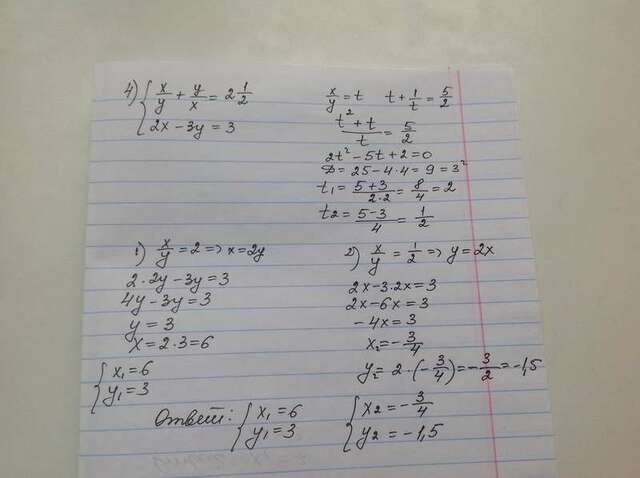 4) { x/y + y/x = 2 1/2
2x - 3y = 3
x/y = t   t + 1/t = 5/2
(t² + t)/t = 5/2
2t² - 5t + 2 = 0
D = 25 - 4·4 = 9 = 3²
t₁ = (5+3)/(2·2) = 8/4 = 2
t2 = (5-3)/4 = 1/2
1) x/y = 2 => x = 2y
2·2y - 3y = 3
4y - 3y = 3
y = 3
x = 2·3 = 6
{ x₁ = 6
y₁ = 3
2) x/y = 1/2 => y = 2x
2x - 3·2x = 3
2x - 6x = 3
-4x = 3
x₂ = -3/4
y₂ = 2·(-3/4) = -3/2 = -1,5
Ответ: { x₁ = 6   { x2 = -3/4
y₁ = 3   y2 = -1,5